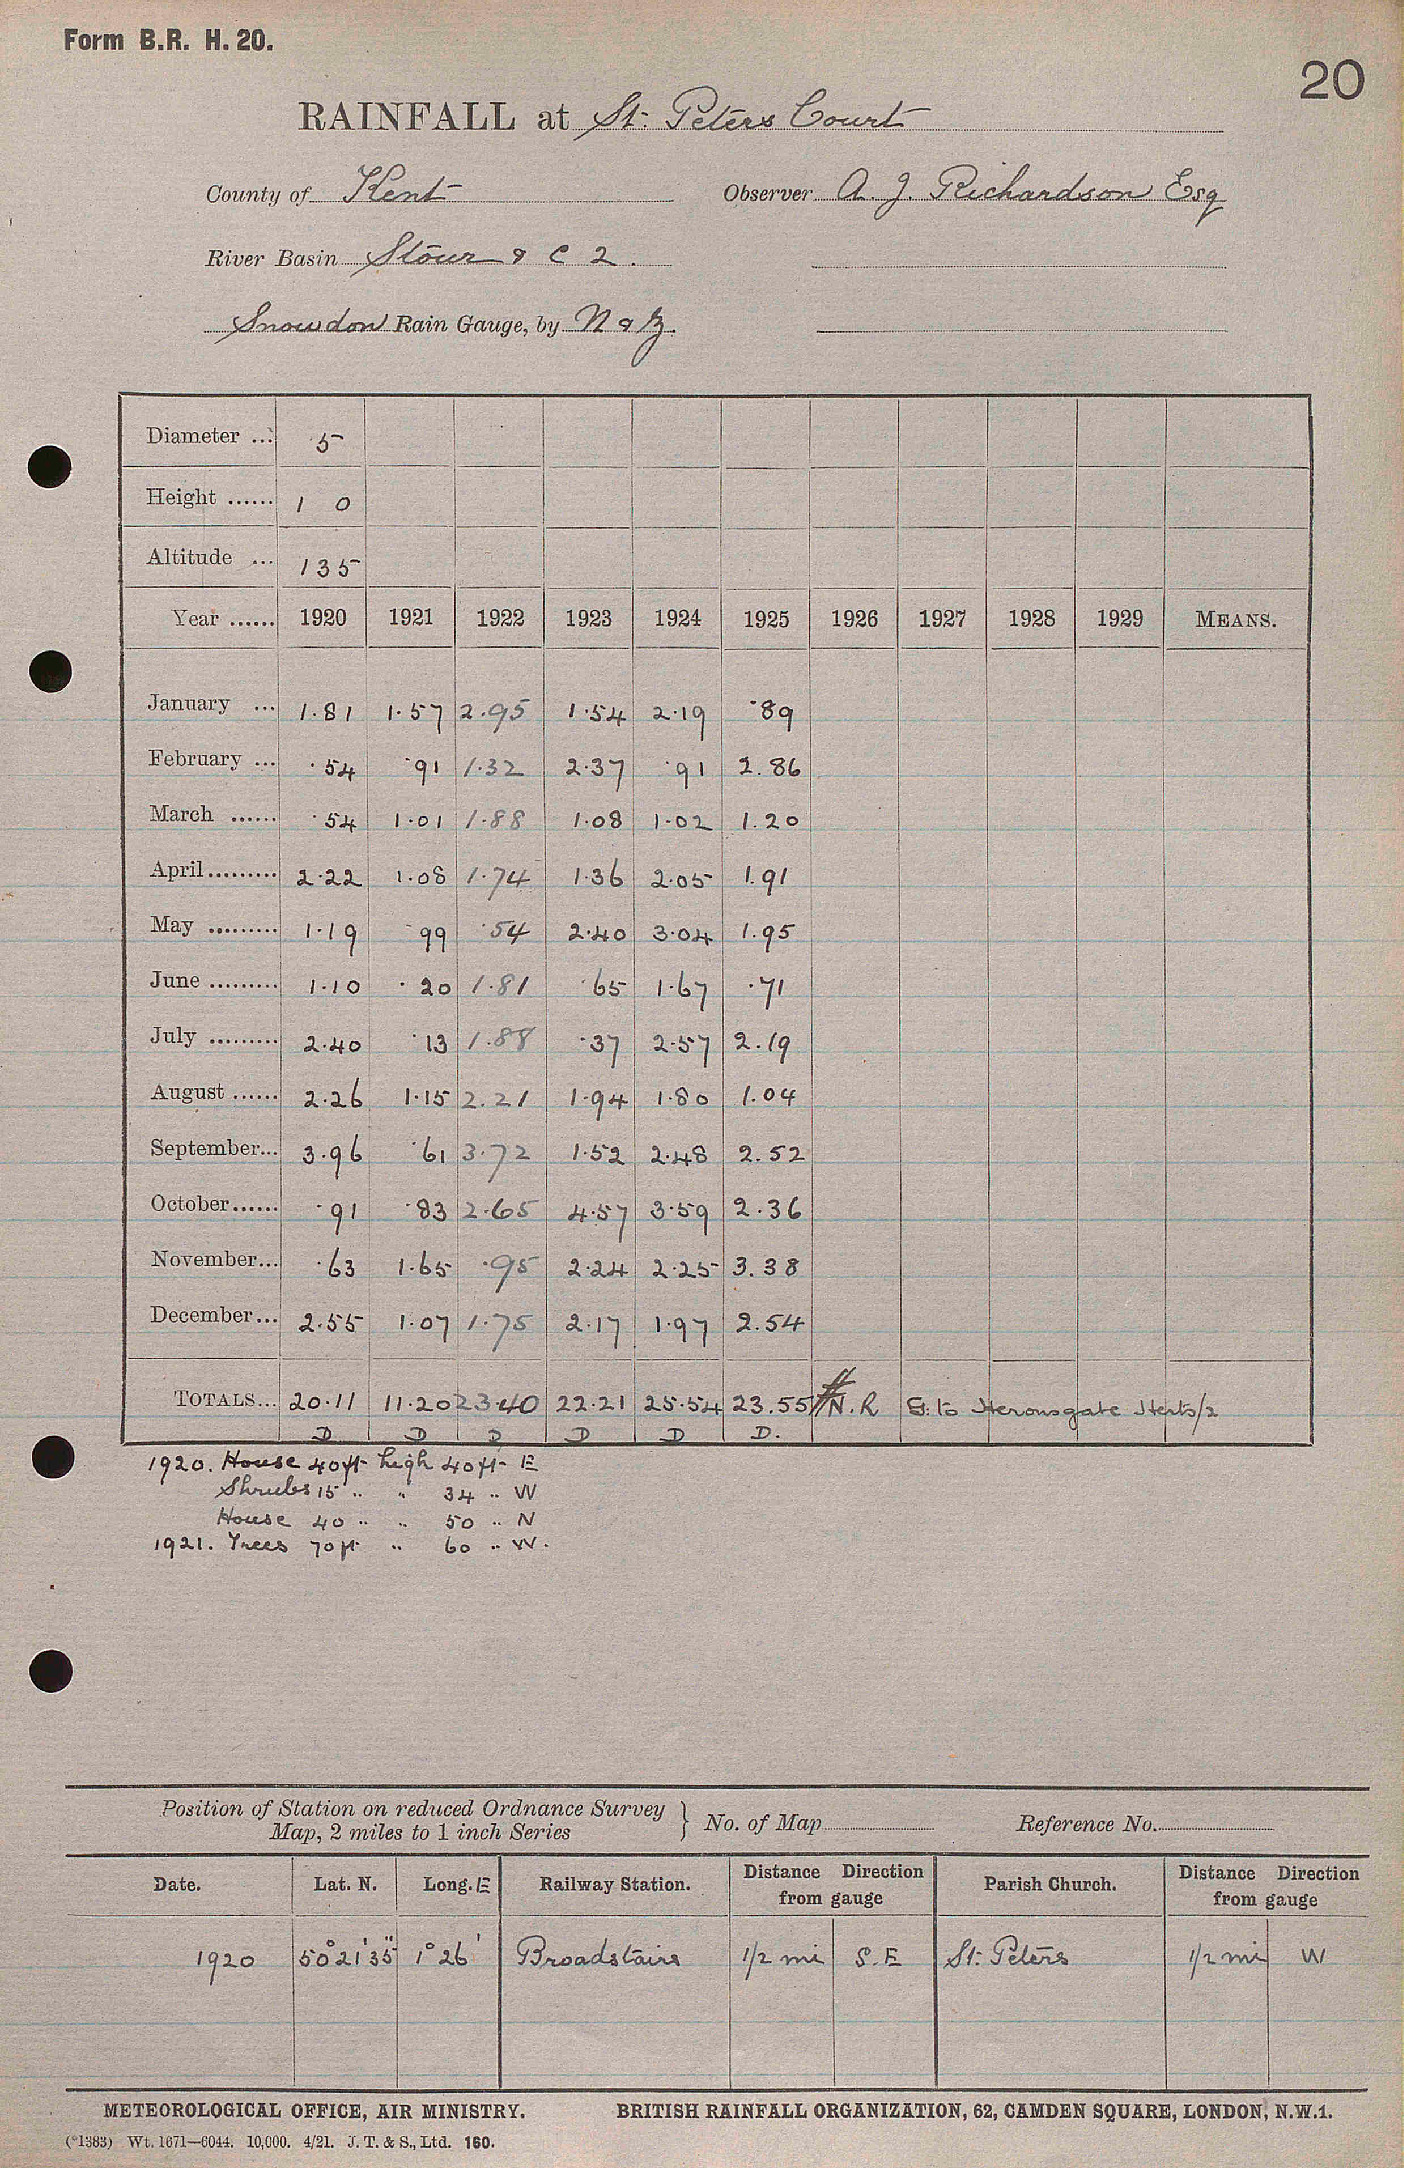 Form B.R. H. 20.
20
RAINFALL at St: Peters Court
County of Kent Observer A. J. Richardson Esq
River Basin Stour & C 2.
Snowdon Rain Gauge, by N & Z.
Diameter ... 5
Height ...... 1 0
Altitude ... 135
Year ...... 1920 1921 1922 1923 1924 1925 1926 1927 1928 1929 MEANS.
January ... 1.81 1.57 2.95 1.54 2.19 .89
February ... .54 .91 1.32 2.37 .91 2.86
March ...... .54 1.01 1.88 1.08 1.02 1.20
April......... 2.22 1.08 1.74 1.36 2.05 1.91
May ......... 1.19 .99 .54 2.40 3.04 1.95
June ......... 1.10 .20 1.81 .65 1.67 .71
July ......... 2.40 .13 1.88 .37 2.57 2.19
August ...... 2.26 1.15 2.21 1.94 1.80 1.04
September... 3.96 .61 3.72 1.52 2.48 2.52
October...... .91 .83 2.65 4.57 3.59 2.36
November... .63 1.65 .95 2.24 2.25 3.38
December... 2.55 1.07 1.75 2.17 1.97 2.54
TOTALS... 20.11 11.20 23.40 22.21 25.54 23.55 N.R G. to Heronsgate Herts/2
D D D D D D.
1920. House 40ft high 40ft E
Shrubs 15 " " 34 " W
House 40 " " 50 " N
1921. Trees 70ft " 60 " W.
Position of Station on reduced Ordnance Survey
Map, 2 miles to 1 inch Series } No. of Map Reference No.
Date. Lat. N. Long. E Railway Station. Distance Direction from gauge Parish Church. Distance Direction from gauge
1920 50°21'35" 1°26' Broadstairs 1/2 mi S.E St: Peters 1/2 mi W
METEOROLOGICAL OFFICE, AIR MINISTRY. BRITISH RAINFALL ORGANIZATION, 62, CAMDEN SQUARE, LONDON, N.W.1.
(*1383) Wt. 1671—6044. 10,000. 4/21. J. T. & S., Ltd. 160.